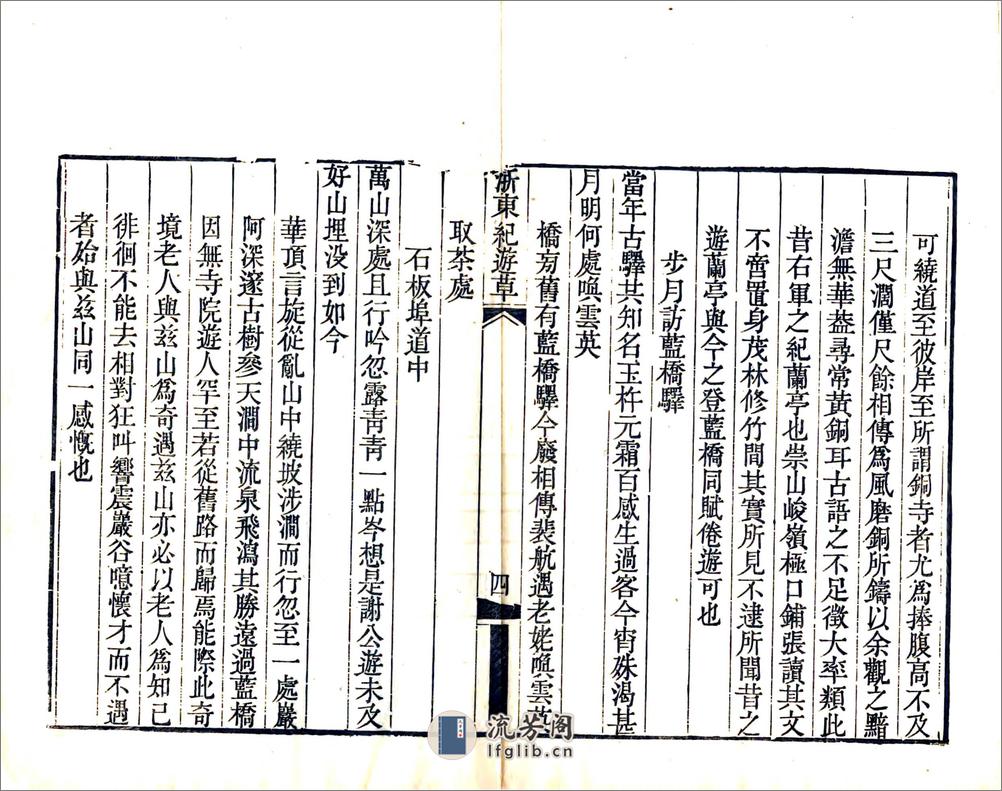 可繞道至彼岸至所謂銅寺者尤為捧腹高不及
三尺濶僅尺餘相傳爲風磨銅所鑄以余觀之黯
澹無華葢尋常黃銅耳古語之不足徵大率類此
昔右軍之紀蘭亭也崇山峻嶺極口鋪張讀其文
不啻置身茂林修竹間其實所見不逮所聞昔之
遊蘭亭與今之登藍橋同賦倦遊可也
步月訪藍橋驛
當年古驛共知名玉杵元霜百感生過客今宵殊渴甚
月明何處喚雲英
橋旁舊有藍橋驛今廢相傳裴航遇老嫗喚雲英
浙東紀遊草
四
取茶處
石板埠道中
萬山深處且行吟忽露靑靑一點岑想是謝公遊未及
好山埋没到如今
華頂言旋從亂山中繞坡涉澗而行忽至一處巖
阿深邃古樹參天澗中流泉飛瀉其勝遠過藍橋
因無寺院遊人罕至若從舊路而歸焉能際此奇
境老人與兹山爲奇遇兹山亦必以老人爲知己
徘徊不能去相對狂叫響震巖谷噫懷才而不遇
者始與兹山同一感慨也
流芳阁
lfglib.cn